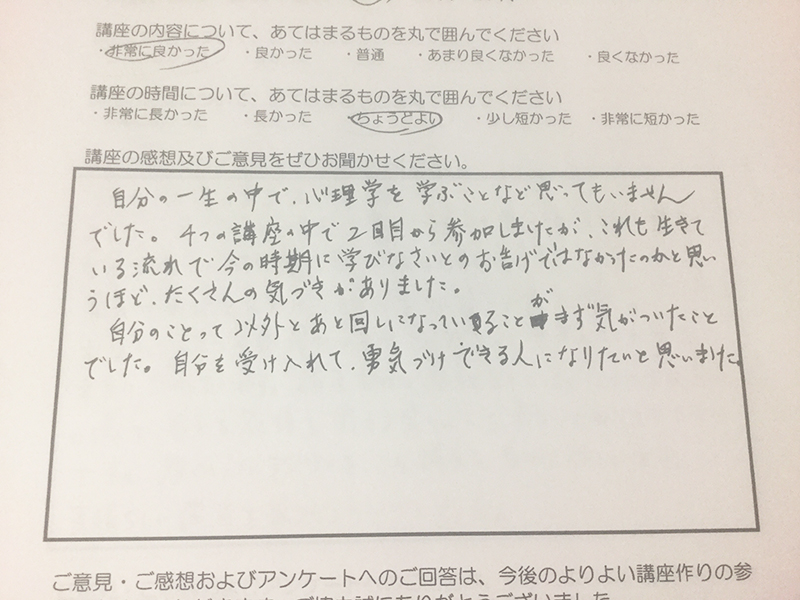 講座の内容について、あてはまるものを丸で囲んでください
・非常に良かった ・良かった ・普通 ・あまり良くなかった ・良くなかった
講座の時間について、あてはまるものを丸で囲んでください
・非常に長かった ・長かった ・ちょうどよい ・少し短かった ・非常に短かった
講座の感想及びご意見をぜひお聞かせください。
自分の一生の中で、心理学を学ぶことなど思ってもいません
でした。4つの講座の中で2回目から参加しましたが、これも生きて
いる流れで今の時期に学びなさいとのお告げではなかったのかと思
うほど、たくさんの気づきがありました。
自分のことって以外とあと回しになっていることがまず気がついたこと
でした。自分を受け入れて、勇気づけできる人になりたいと思いました。
ご意見・ご感想およびアンケートへのご回答は、今後のよりよい講座作りの参